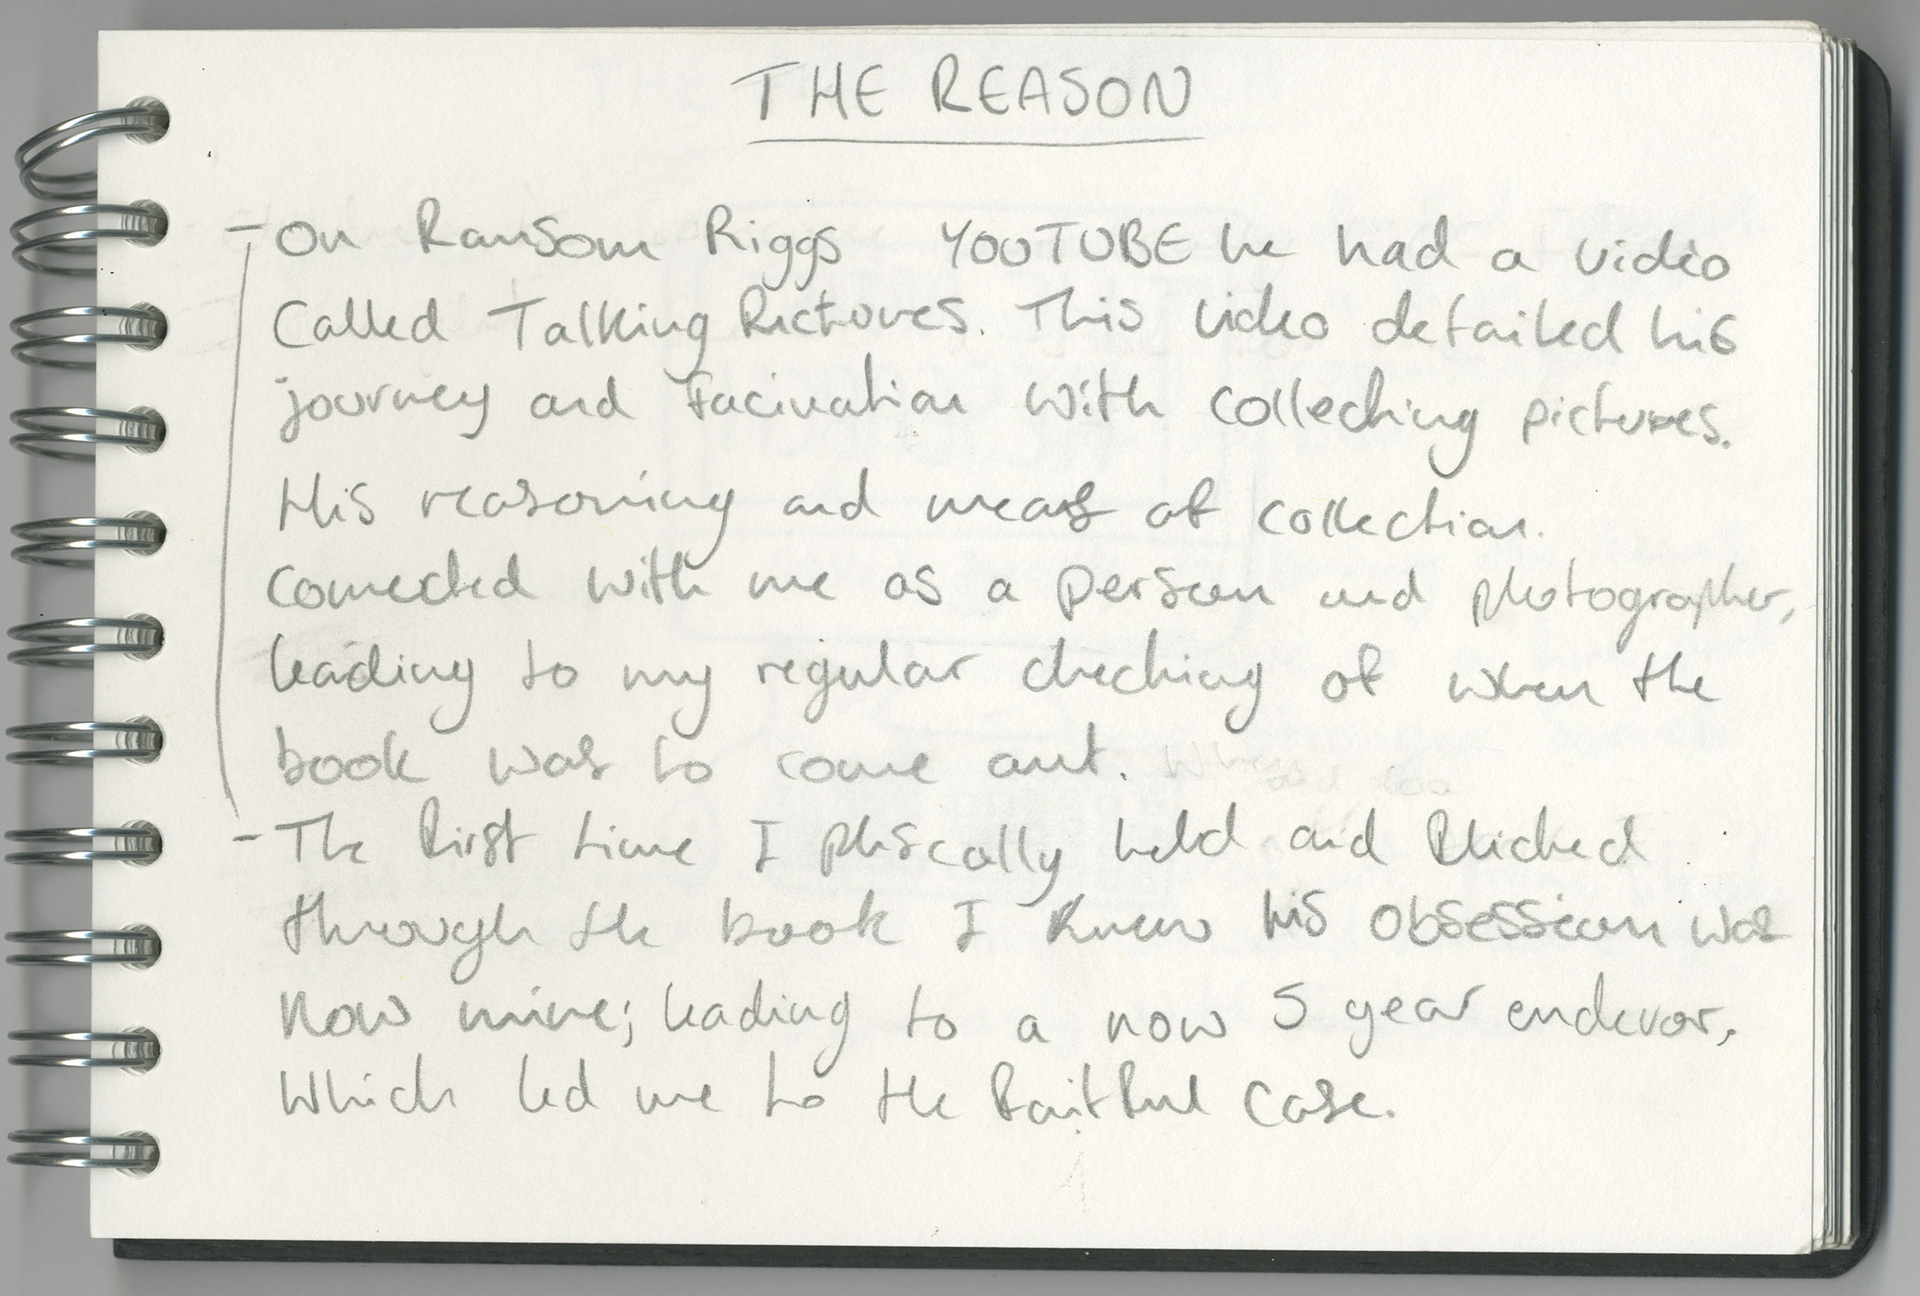 THE REASON
- On Ransom Riggs YOUTUBE he had a video
Called Talking Pictures. This video detailed his
journey and facination with collecting pictures.
His reasoning and means of collection.
connected with me as a person and photographer,
leading to my regular checking of when the
book was to come out.
- The first time I phiscally held and flicked
through the book I knew his obsession was
now mine; leading to a now 5 year endevor,
which led me to the faithful case.